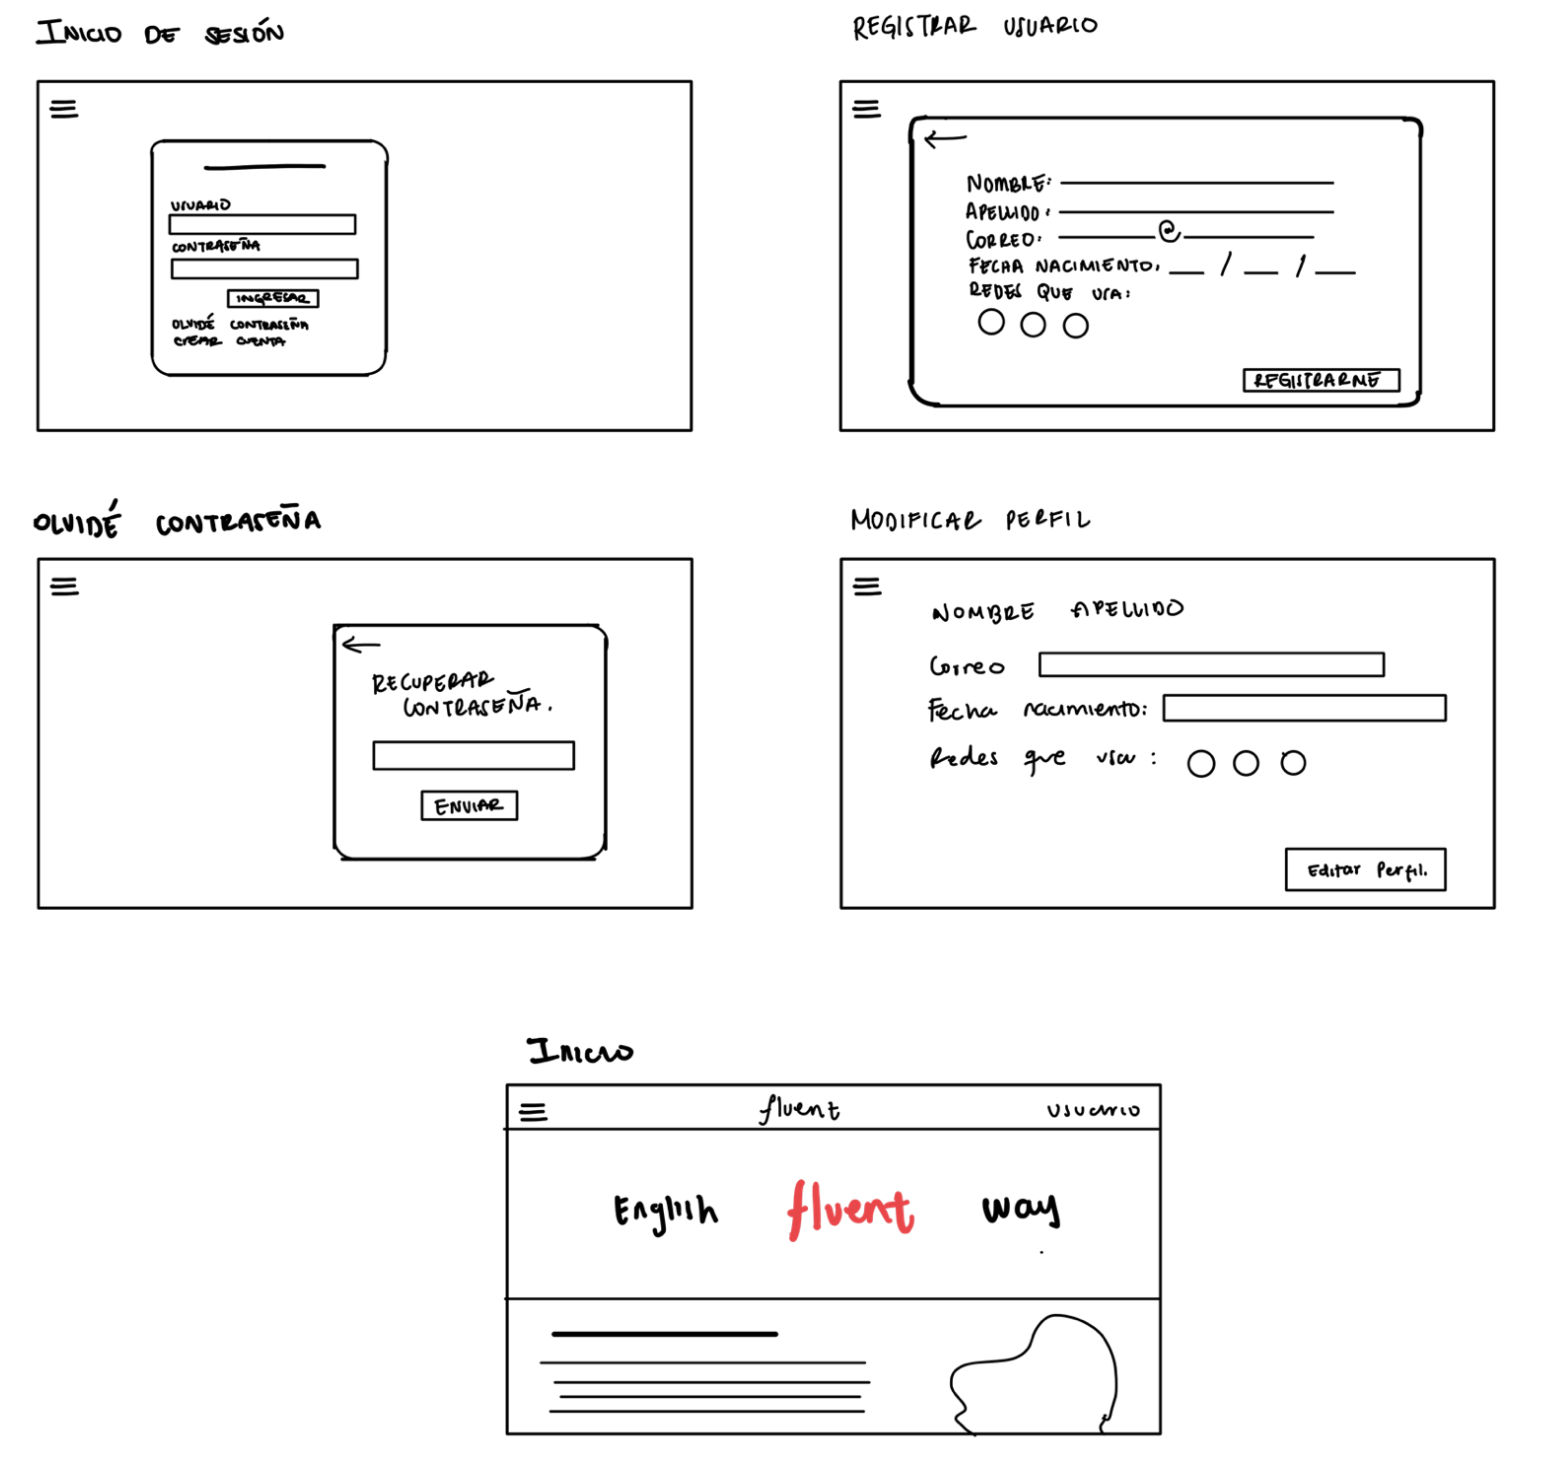 INICIO DE SESIÓN
USUARIO
CONTRASEÑA
INGRESAR
OLVIDÉ CONTRASEÑA
CREAR CUENTA
REGISTRAR USUARIO
NOMBRE:
APELLIDO:
CORREO: @
FECHA NACIMIENTO: / /
REDES QUE USA:
REGISTRARME
OLVIDÉ CONTRASEÑA
RECUPERAR
CONTRASEÑA.
ENVIAR
MODIFICAR PERFIL
NOMBRE APELLIDO
Correo
Fecha nacimiento:
Redes que usa:
Editar Perfil.
INICIO
fluent usuario
English fluent way